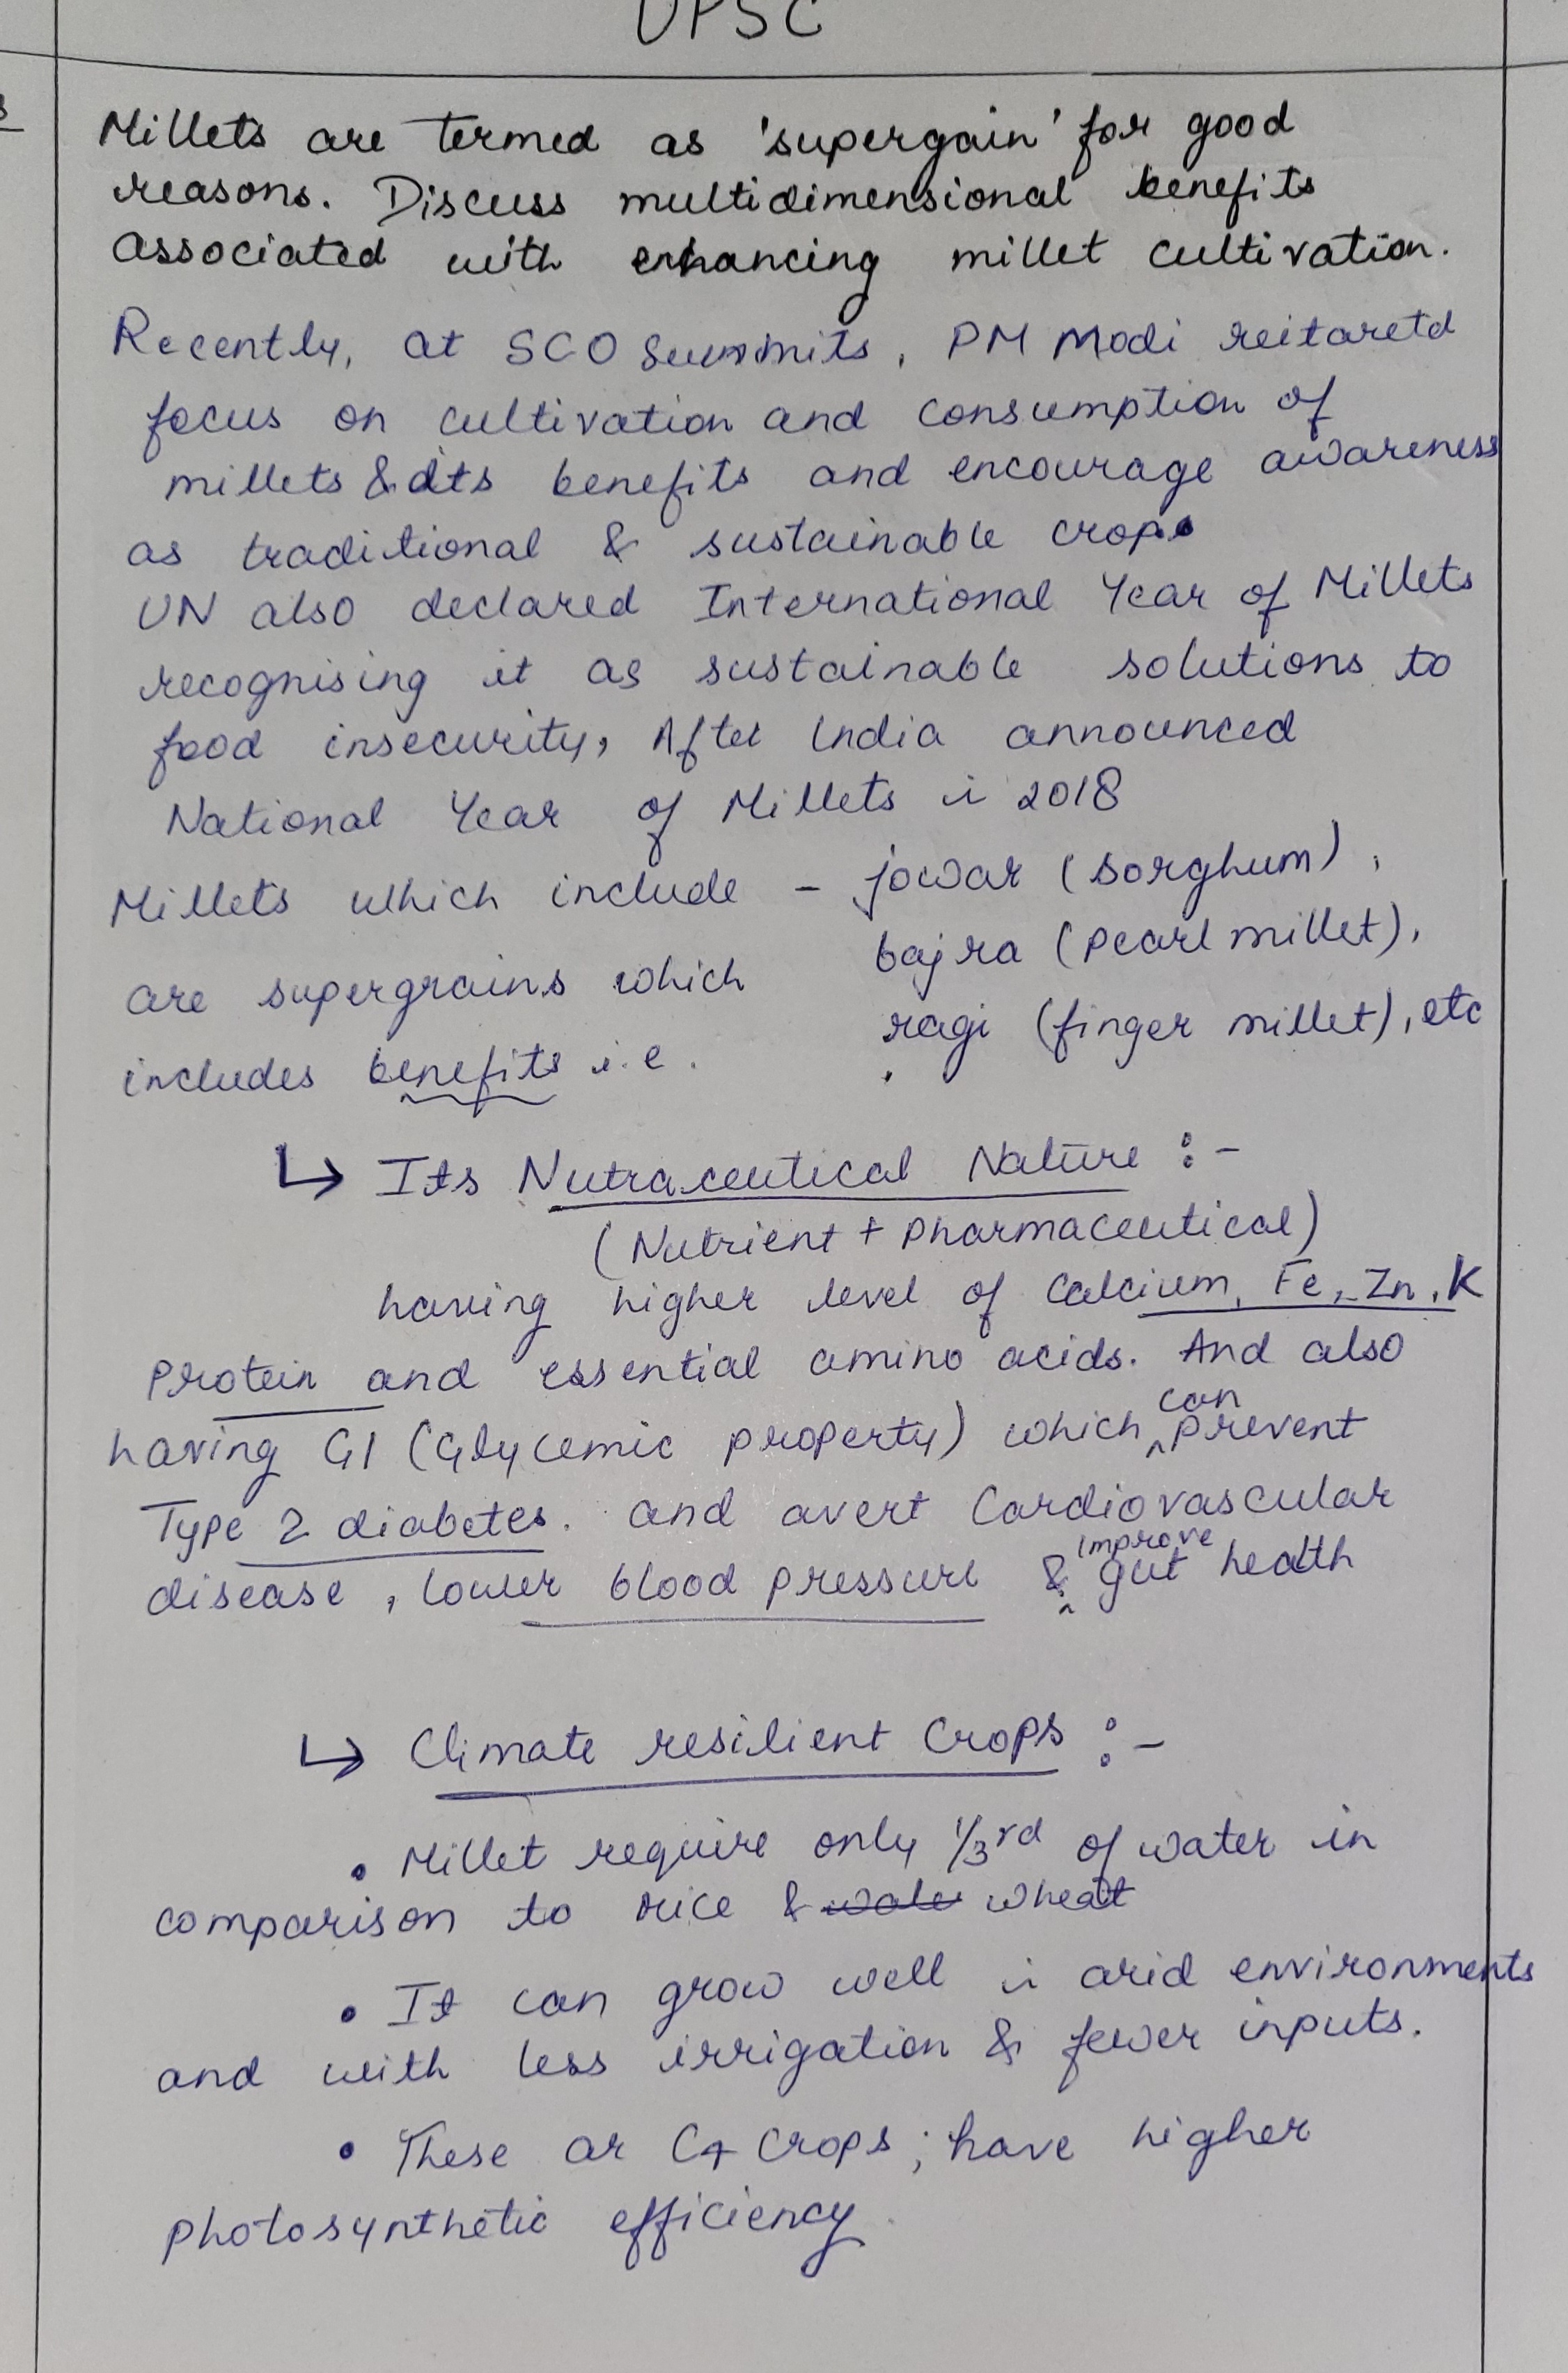 UPSC
Millets are termed as 'supergain' for good
reasons. Discuss multidimensional benefits
associated with enhancing millet cultivation.
Recently, at SCO Summits, PM Modi reitaretd
focus on cultivation and consumption of
millets & its benefits and encourage awareness
as traditional & sustainable crops
UN also declared International Year of Millets
recognising it as sustainable solutions to
food insecurity, After India announced
National Year of Millets i 2018
Millets which include - jowar (sorghum),
bajra (pearl millet),
are supergrains which
ragi (finger millet), etc
includes benefits i.e.
↳ Its Nutraceutical Nature :-
(Nutrient + Pharmaceutical)
having higher level of Calcium, Fe, Zn, K
Protein and essential amino acids. And also
having GI (Glycemic property) which can prevent
Type 2 diabetes. and avert Cardiovascular
disease, lower blood pressure & improve gut health
↳ Climate resilient Crops :-
• Millet require only 1/3rd of water in
comparison to rice & wheat
• It can grow well i arid environments
and with less irrigation & fewer inputs.
• These ar C4 Crops; have higher
photosynthetic efficiency.